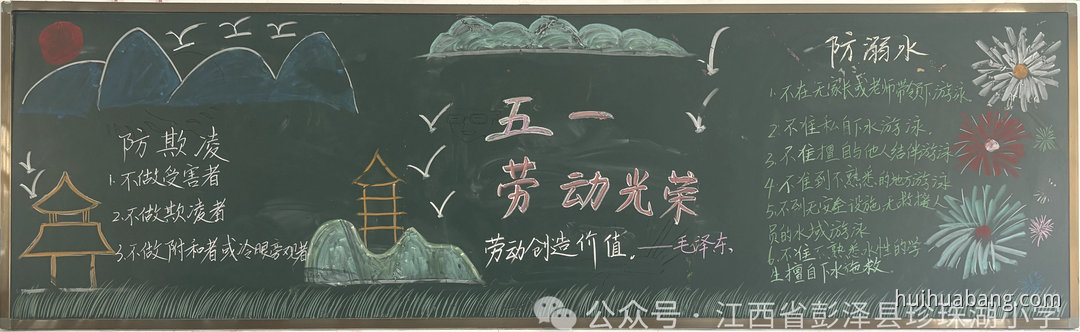 防欺凌
1.不做受害者
2.不做欺凌者
3.不做附和者或冷眼旁观者
五一
劳动光荣
劳动创造价值。——毛泽东
防溺水
1.不在无家长或老师带领下游泳
2.不准私自下水游泳.
3.不准擅自与他人结伴游泳
4.不准到不熟悉的地方游泳
5.不到无安全设施、无救援人
员的水域游泳
6.不准不熟悉水性的学
生擅自下水施救.
huihuabang.com
公众号·江西省彭泽县珍珠湖小学